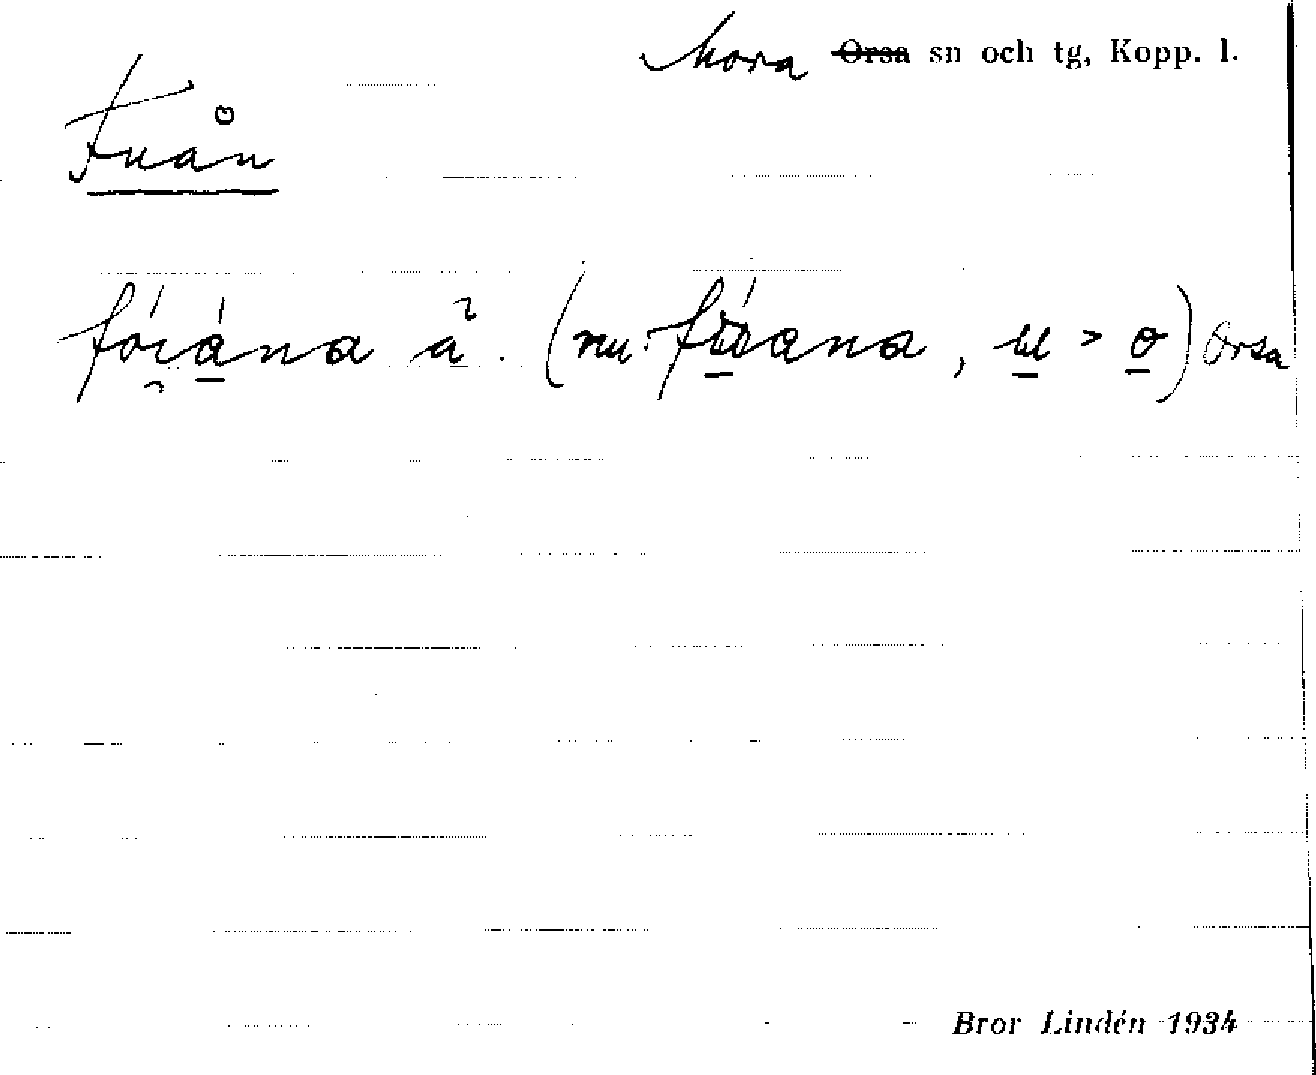 Mora Orsa sn och tg, Kopp. l.
Fuån
fórána å. (nu. fúrana, u > o) Orsa
Bror Lindén 1934